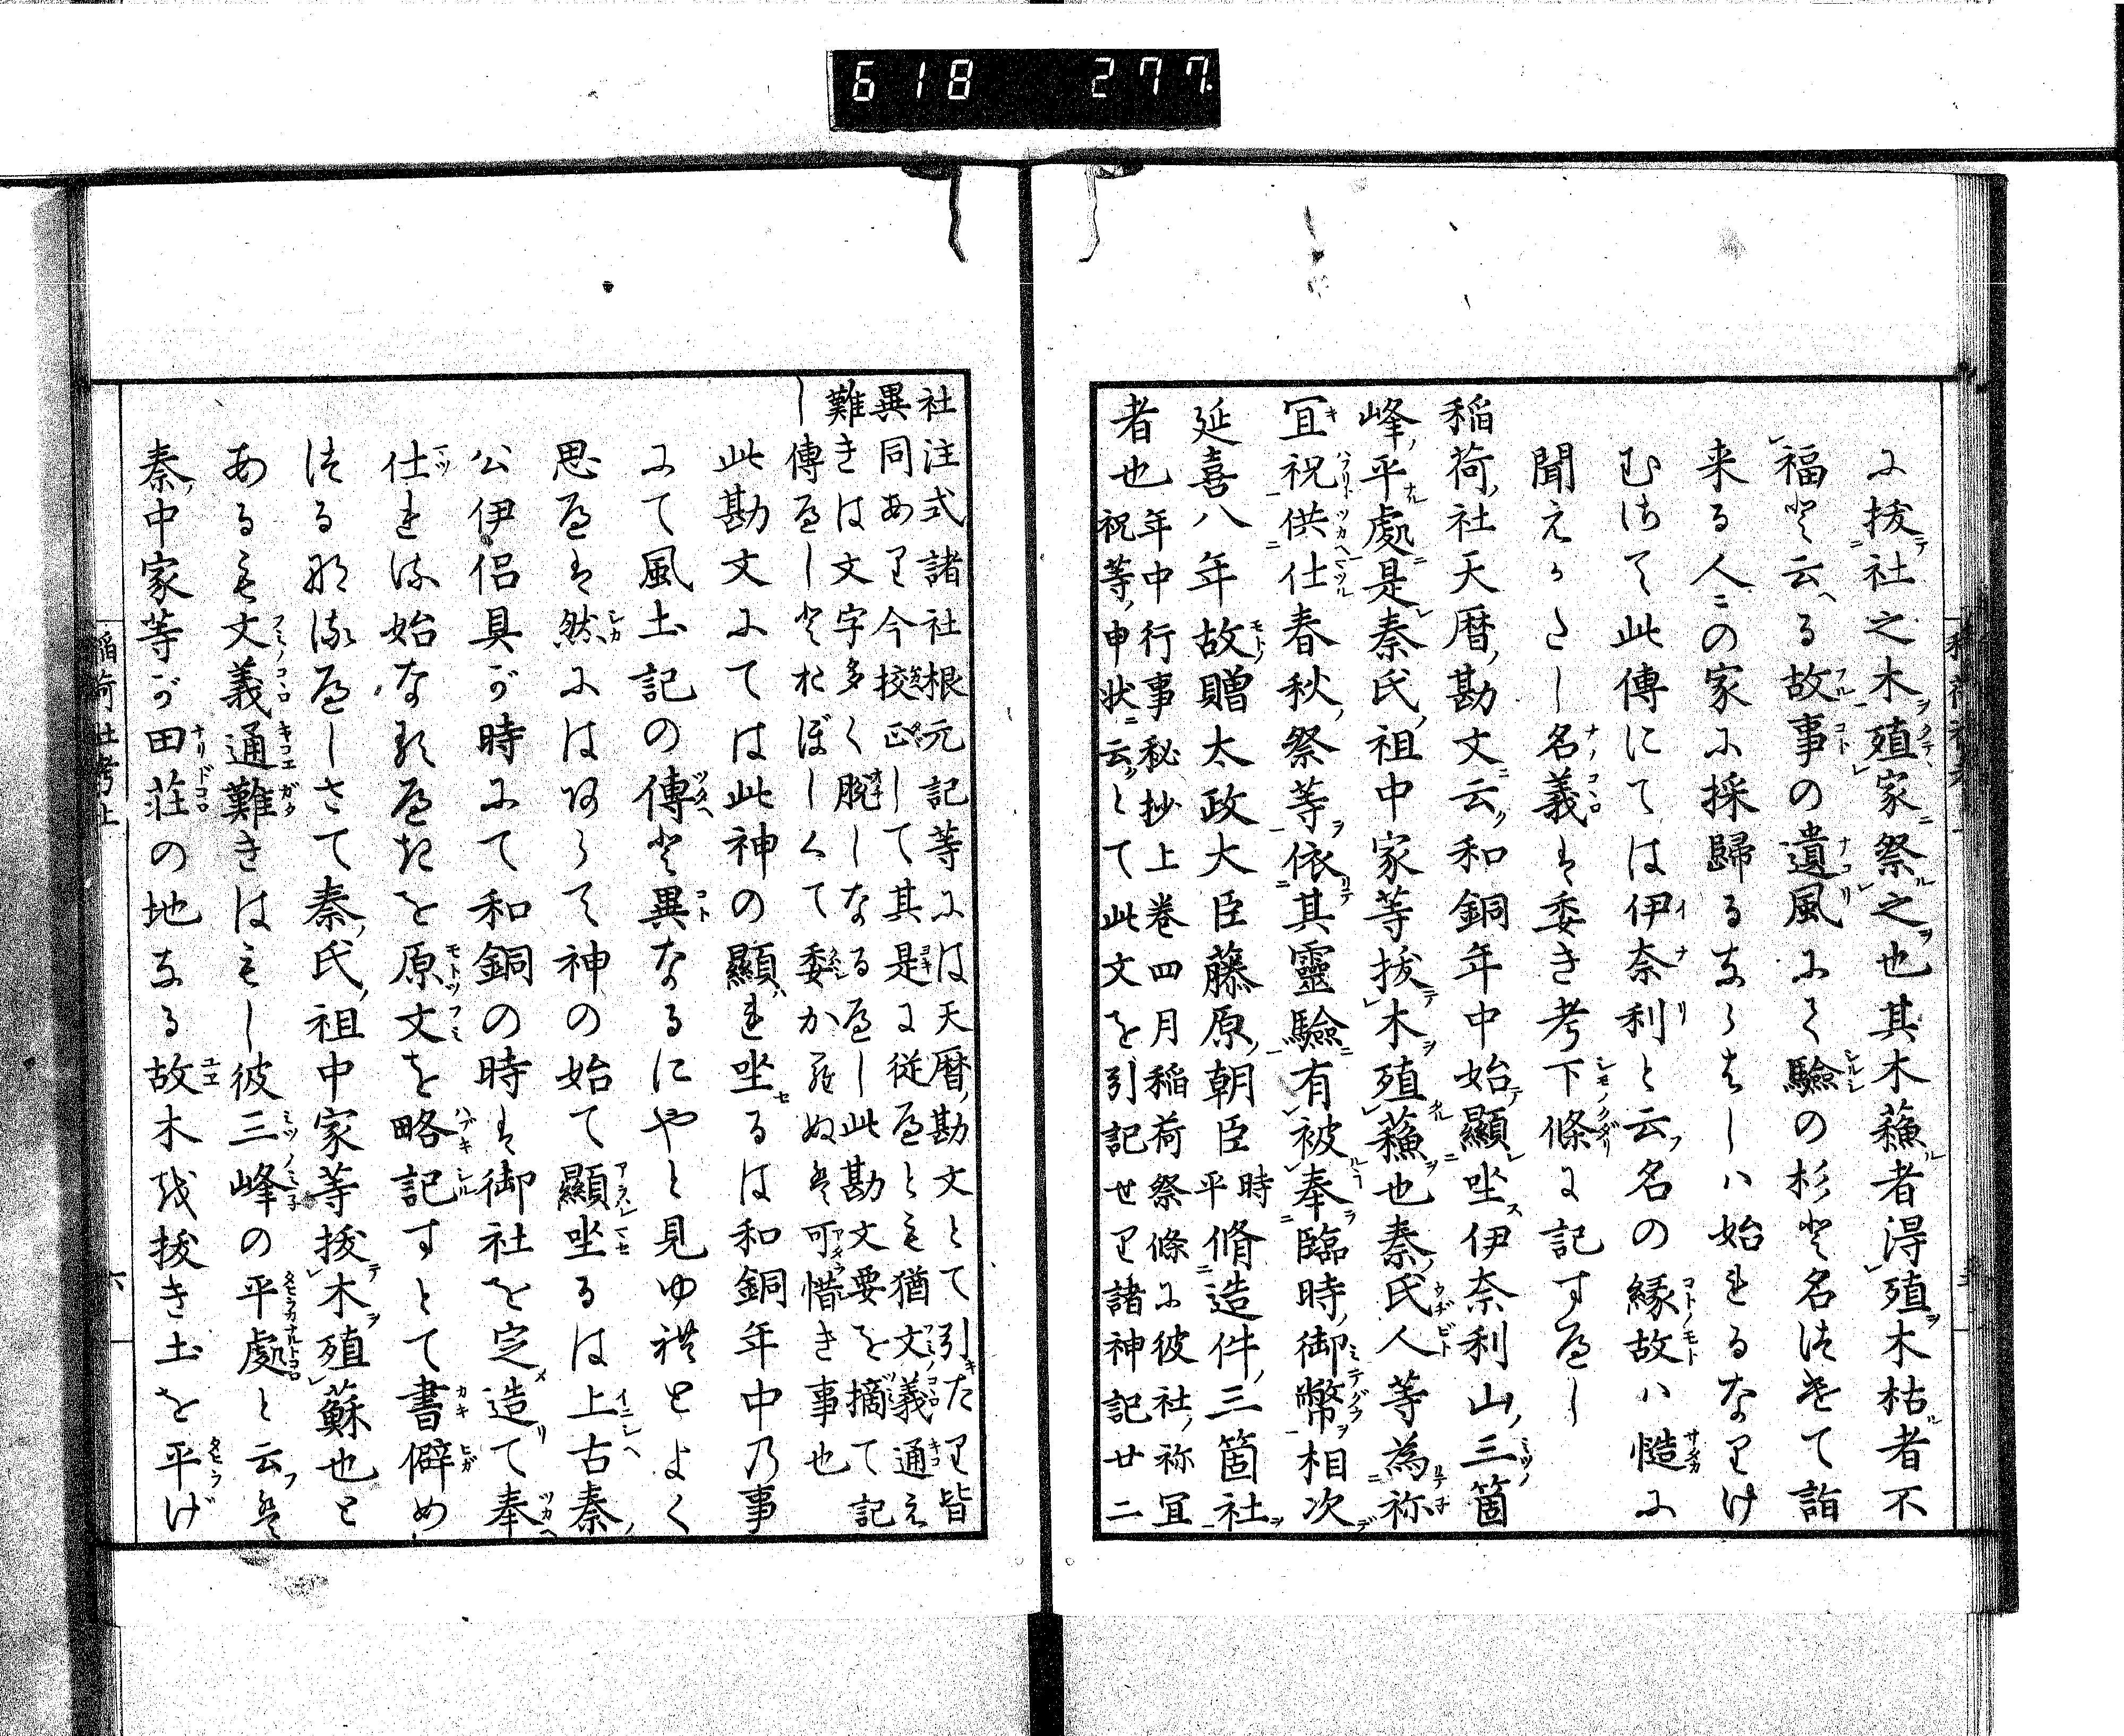 618 277
に抜社之木殖家祭之也其木蘓者得殖木枯者不
福と云る故事の遺風にて驗の杉と名づけて詣
来る人〻の家に採歸るならはしハ始れるなりけ
むさて此傳にては伊奈利と云名の縁故ハ慥に
聞えがたし名義は委き考下條に記すべし
稲荷社天暦勘文云和銅年中始顯坐伊奈利山三箇
峰平處是秦氏祖中家等抜木殖蘓也秦氏人等為祢
宜祝供仕春秋祭等依其靈驗有被奉臨時御幣相次
延喜八年故贈太政大臣藤原朝臣時平脩造件三箇社
者也年中行事秘抄上巻四月稲荷祭條に彼社祢宜
祝等申状云とて此文を引記せり諸神記廿二
社注式諸社根元記等には天暦勘文とて引たり皆
異同あり今挍正して其是に従べしとも猶文義通え
難きは文字多く脱しなるべし此勘文要を摘て記
し傳べしとおぼしくて委からぬは可惜き事也
此勘文にては此神の顯れ坐るは和銅年中乃事
にて風土記の傳と異なるにやと見ゆれどよく
思へば然にはあらで神の始て顯坐るは上古秦
公伊侶具が時にて和銅の時は御社を定造て奉
仕れる始なるべきを原文を略記すとて書僻め
つるなるべしさて秦氏祖中家等抜木殖蘇也と
あるも文義通難きはもし彼三峰の平處と云は
秦中家等が田荘の地なる故木を抜き土を平げ
稲荷社考上
六